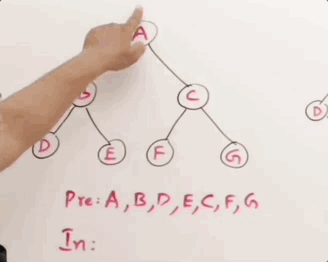 A
B C D
D E F G
Pre: A, B, D, E, C, F, G
In: